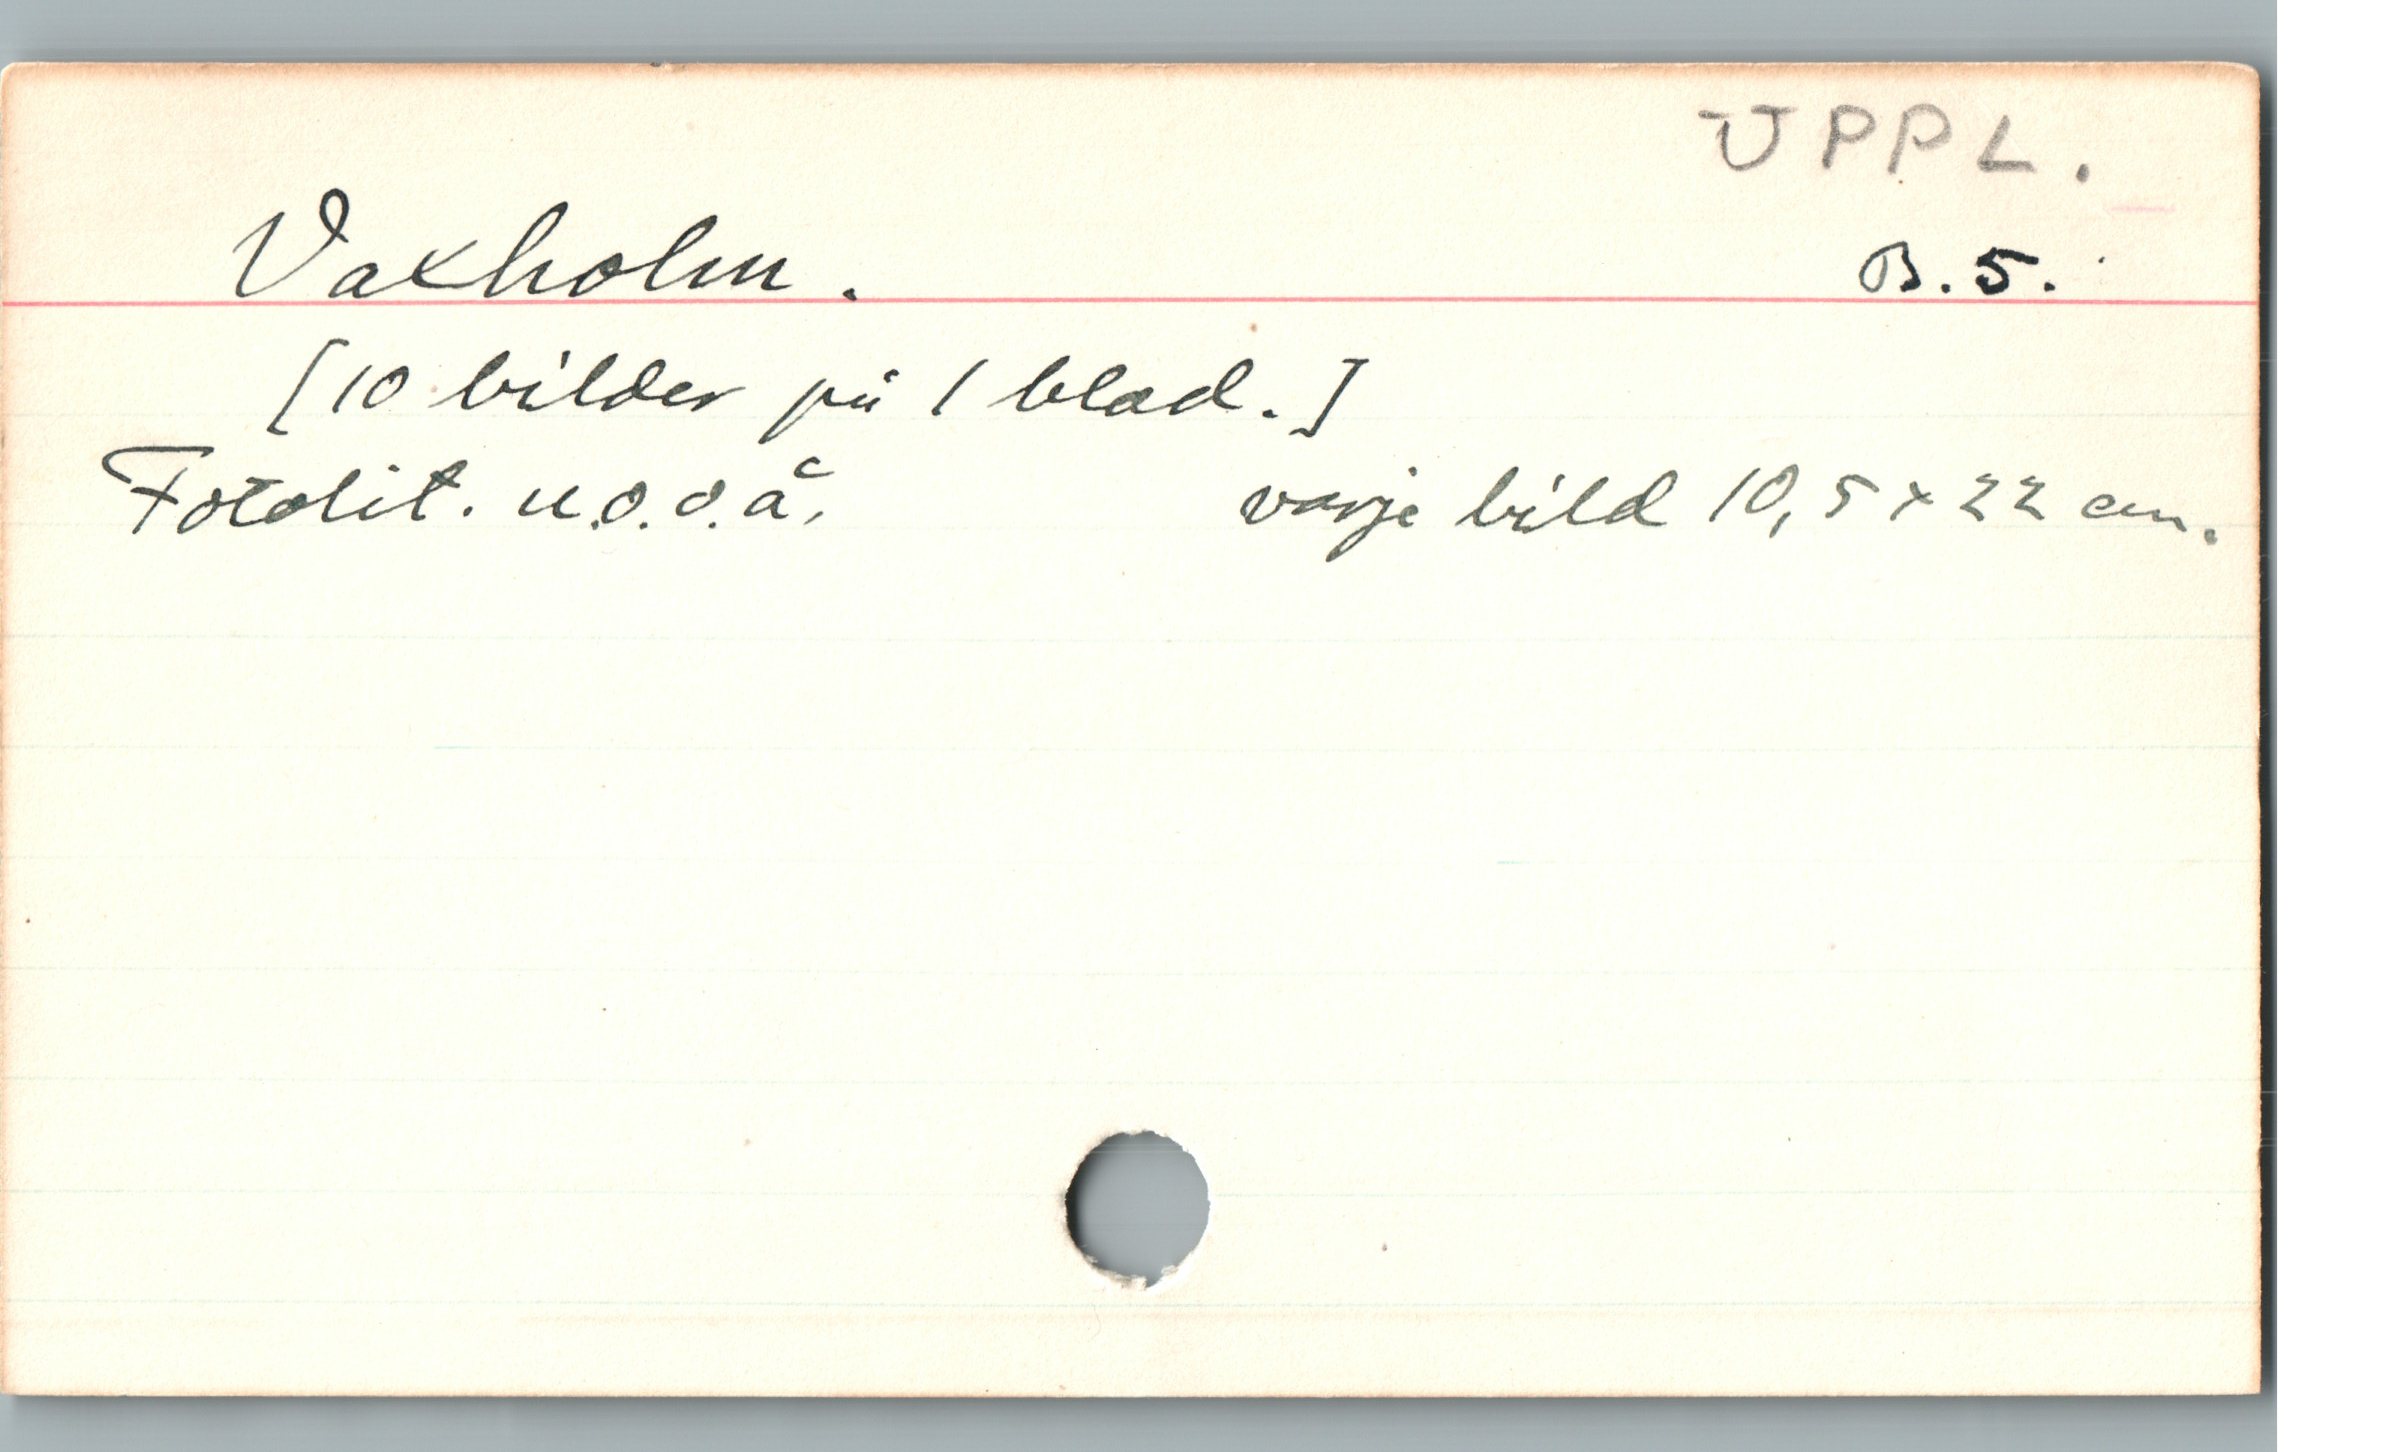 UPPL.
Vaxholm. B. 5.
[10 bilder på 1 blad.]
Fotolit. u.o.o.å. varje bild 10,5 x 22 cm.